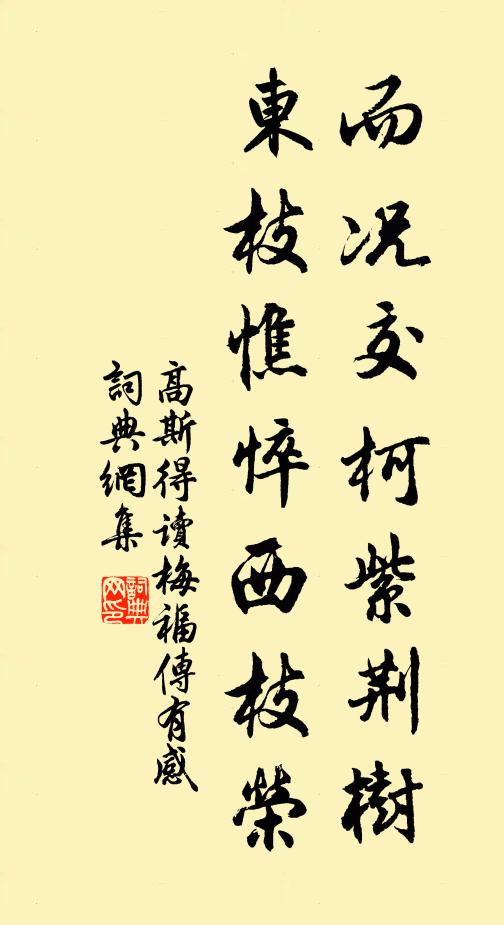 而况交柯紫荆樹
東枝憔悴西枝榮
高斯得读梅福傳有感
詞典網集
詞典
网印